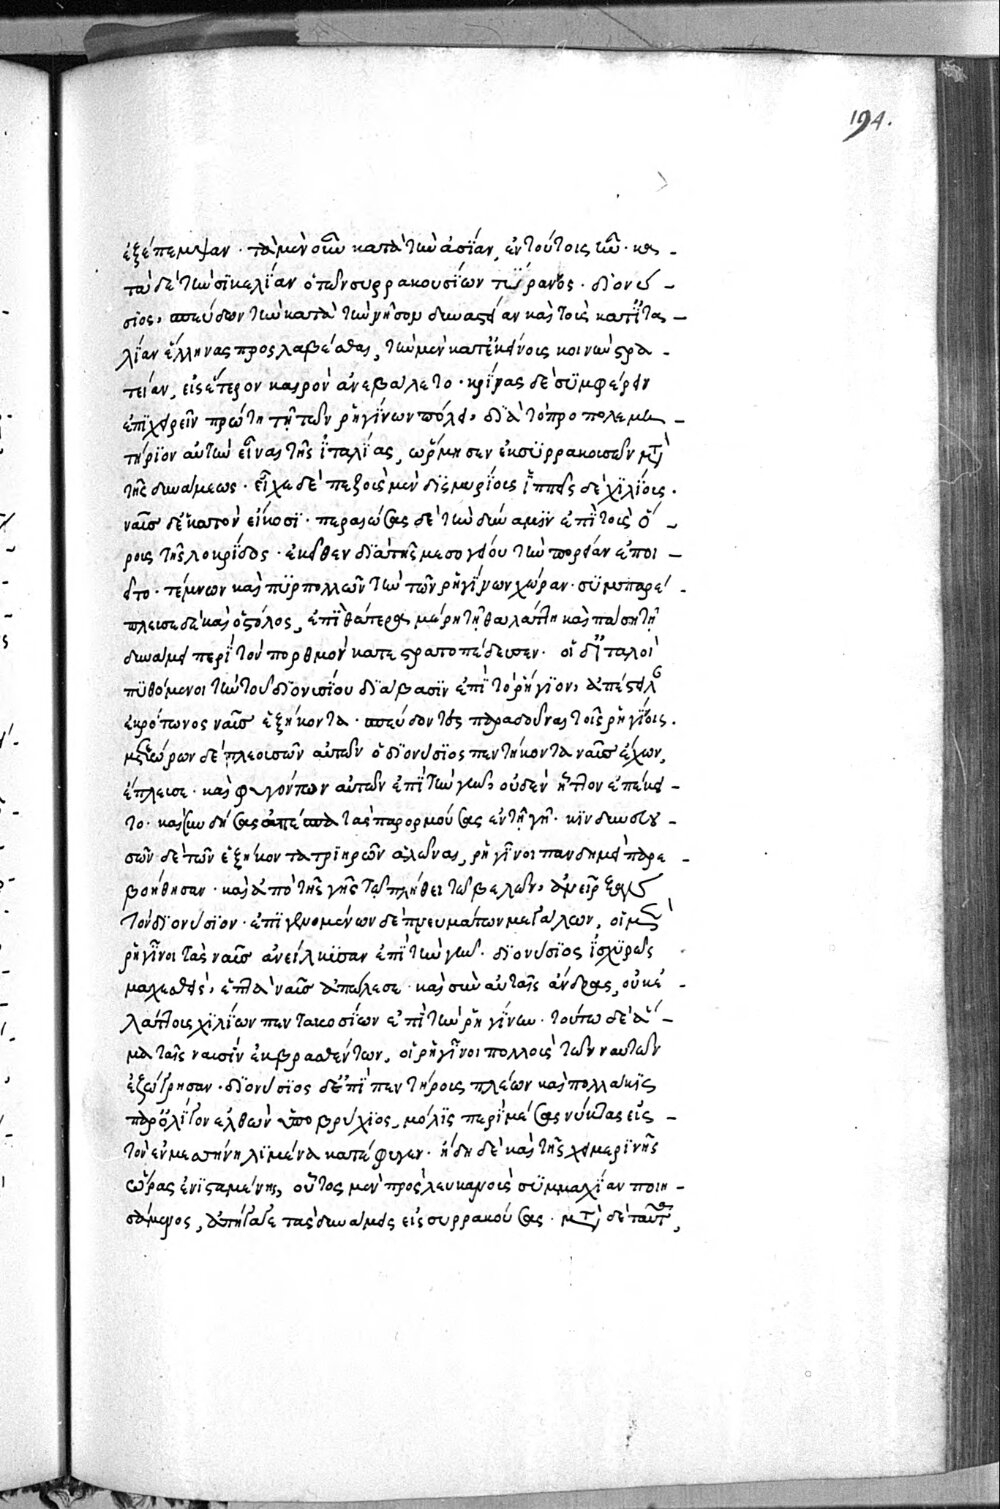 194.
ἐξέπεμψαν · τὰ μὲν οὖν κατὰ τὴν ἀσίαν, ἐν τούτοις ἦν · κα-
τὰ δὲ τὴν σικελίαν ὁ τῶν συρρακουσίων τύραννος · διονύ-
σιος, σπεύδων τὴν κατὰ τὴν νῆσον δυναστείαν καὶ τοὺς κατ' ἰτα-
λίαν ἕλληνας προσλαβέσθαι, τὴν μὲν κατ' ἐκείνοις κοινὴν στρα-
τείαν, εἰς ἕτερον καιρὸν ἀνεβάλετο · κρίνας δὲ συμφέρειν
ἐπιχειρεῖν πρώτη τῇ τῶν ῥηγίνων πόλει, διὰ τὸ προπολεμι-
τήριον αὐτὴν εἶναι τῆς ἰταλίας, ὥρμησεν ἐκ συρρακουσῶν μετὰ
τῆς δυνάμεως · εἶχε δὲ πεζοὺς μὲν δισμυρίοις ἱππεῖς δὲ χιλίοις ·
ναῦς δ' ἑκατὸν εἴκοσι · περαιώσας δὲ τὴν δύναμιν ἐπὶ τοὺς ὅ-
ροις τῆς λοκρίδος · ἐκεῖθεν διὰ τῆς μεσογείου τὴν πορείαν ἐποι-
εῖτο · τέμνων καὶ πυρπολῶν τὴν τῶν ῥηγίνων χώραν · συμπαρέ-
πλευσε δὲ καὶ ὁ στόλος, ἐπὶ θάτερα μέρη τῇ θαλάττῃ καὶ πάσῃ τῇ
δυνάμει περὶ τὸν πορθμὸν κατεστρατοπέδευσεν · οἱ δ' ἰταλοὶ
πυθόμενοι τὴν τοῦ διονυσίου διάβασιν ἐπὶ τὸ ῥήγιον, ἀπέστειλαν
ἐκ κρότωνος ναῦς ἑξήκοντα · σπεύδοντες παραδοῦναι τοῖς ῥηγίνοις ·
μετεώρων δὲ πλεουσῶν αὐτῶν ὁ διονύσιος πεντήκοντα ναῦς ἔχων,
ἐπέπλευσε · καὶ φυγόντων αὐτῶν ἐπὶ τὴν γῆν, οὐδὲν ἧττον ἐπέκει-
το · καὶ συνδήσας ἀπέσπα τὰς παρορμούσας ἐν τῇ γῇ · κινδυνευου-
σῶν δὲ τῶν ἑξήκοντα τριηρῶν ἁλῶναι, ῥηγῖνοι πανδημεὶ παρε-
βοήθησαν · καὶ ἀπὸ τῆς γῆς τῷ πλήθει τῶν βελῶν, ἀνεῖρξαν
τὸν διονύσιον · ἐπιγενομένων δὲ πνευμάτων μεγάλων, οἱ μὲν
ῥηγῖνοι τὰς ναῦς ἀνείλκυσαν ἐπὶ τὴν γῆν · διονύσιος ἰσχυρῶς
μαχεσθεὶς, ἑπτὰ ναῦς ἀπώλεσε · καὶ σὺν αὐταῖς ἄνδρας, οὐκ ἐ-
λάττοις χιλίων πεντακοσίων ἐπὶ τὴν ῥηγίνην · τούτων δὲ ἅ-
μα ταῖς ναυσὶν ἐκβρασθέντων, οἱ ῥηγῖνοι πολλοὺς τῶν ναυτῶν
ἐζώγρησαν · διονύσιος δ' ἐπὶ πεντήροις πλέων καὶ πολλάκις
παρ' ὀλίγον ἐλθὼν ὑποβρύχιος, μόλις περὶ μέσας νύκτας εἰς
τὸν ἐν μεσσήνῃ λιμένα κατέφυγεν · ἤδη δὲ καὶ τῆς χειμερινῆς
ὥρας ἐνισταμένης, οὗτος μὲν πρὸς λευκανοὺς συμμαχίαν ποιη-
σάμενος, ἀπήγαγε τὰς δυνάμεις εἰς συρρακούσας · μετὰ δὲ ταῦτα,